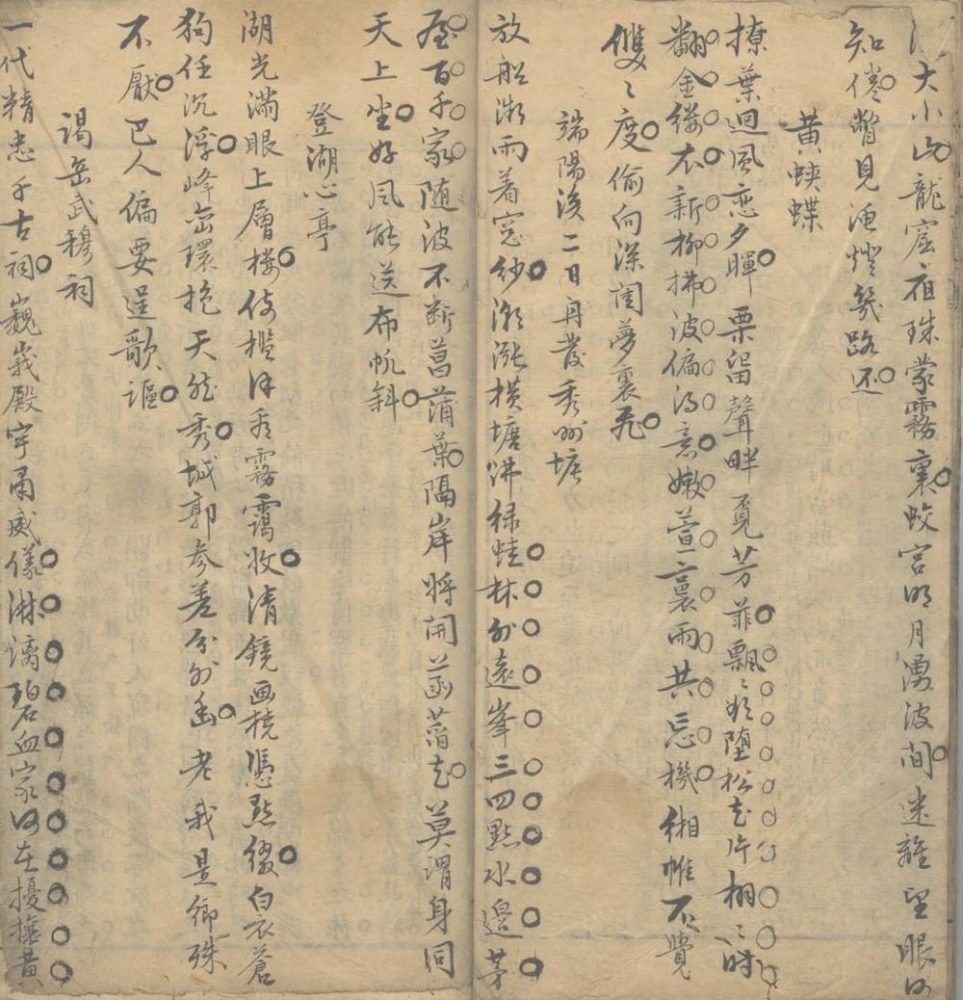 大小山龍窟夜珠蒙霧裏蛟宮明月湧波間迷離望眼何
知倦瞥見漁燈幾路还
黃蛺蝶
撩葉迴風恋夕暉栗留聲畔覔芳菲飄〻堕松花片栩〻时
翻金縷衣新柳拂波偏得意嫩萱裏雨共忘機缃帷不覺
雙〻度偷向深闺夢裏飛
端陽後二日舟发秀州塘
放船微雨着窓紗漸漲橫塘沸绿蛙林外遠峯三四點水邉茅
屋百千家随波不断菖蒲葉隔岸将開菡萏花莫謂身同
天上坐好風能送布帆斜
登湖心亭
湖光满眼上層楼倚槛霧靄收清鏡画橈憑點缀白衣蒼
狗任沉浮峰峦環抱天然秀城郭参差分外幽老我是鄉殊
不厭巴人偏要逞歌謳
謁岳武穆祠
一代精忠千古祠巍峩殿宇肅威儀淋漓碧血家何在擾攘黄